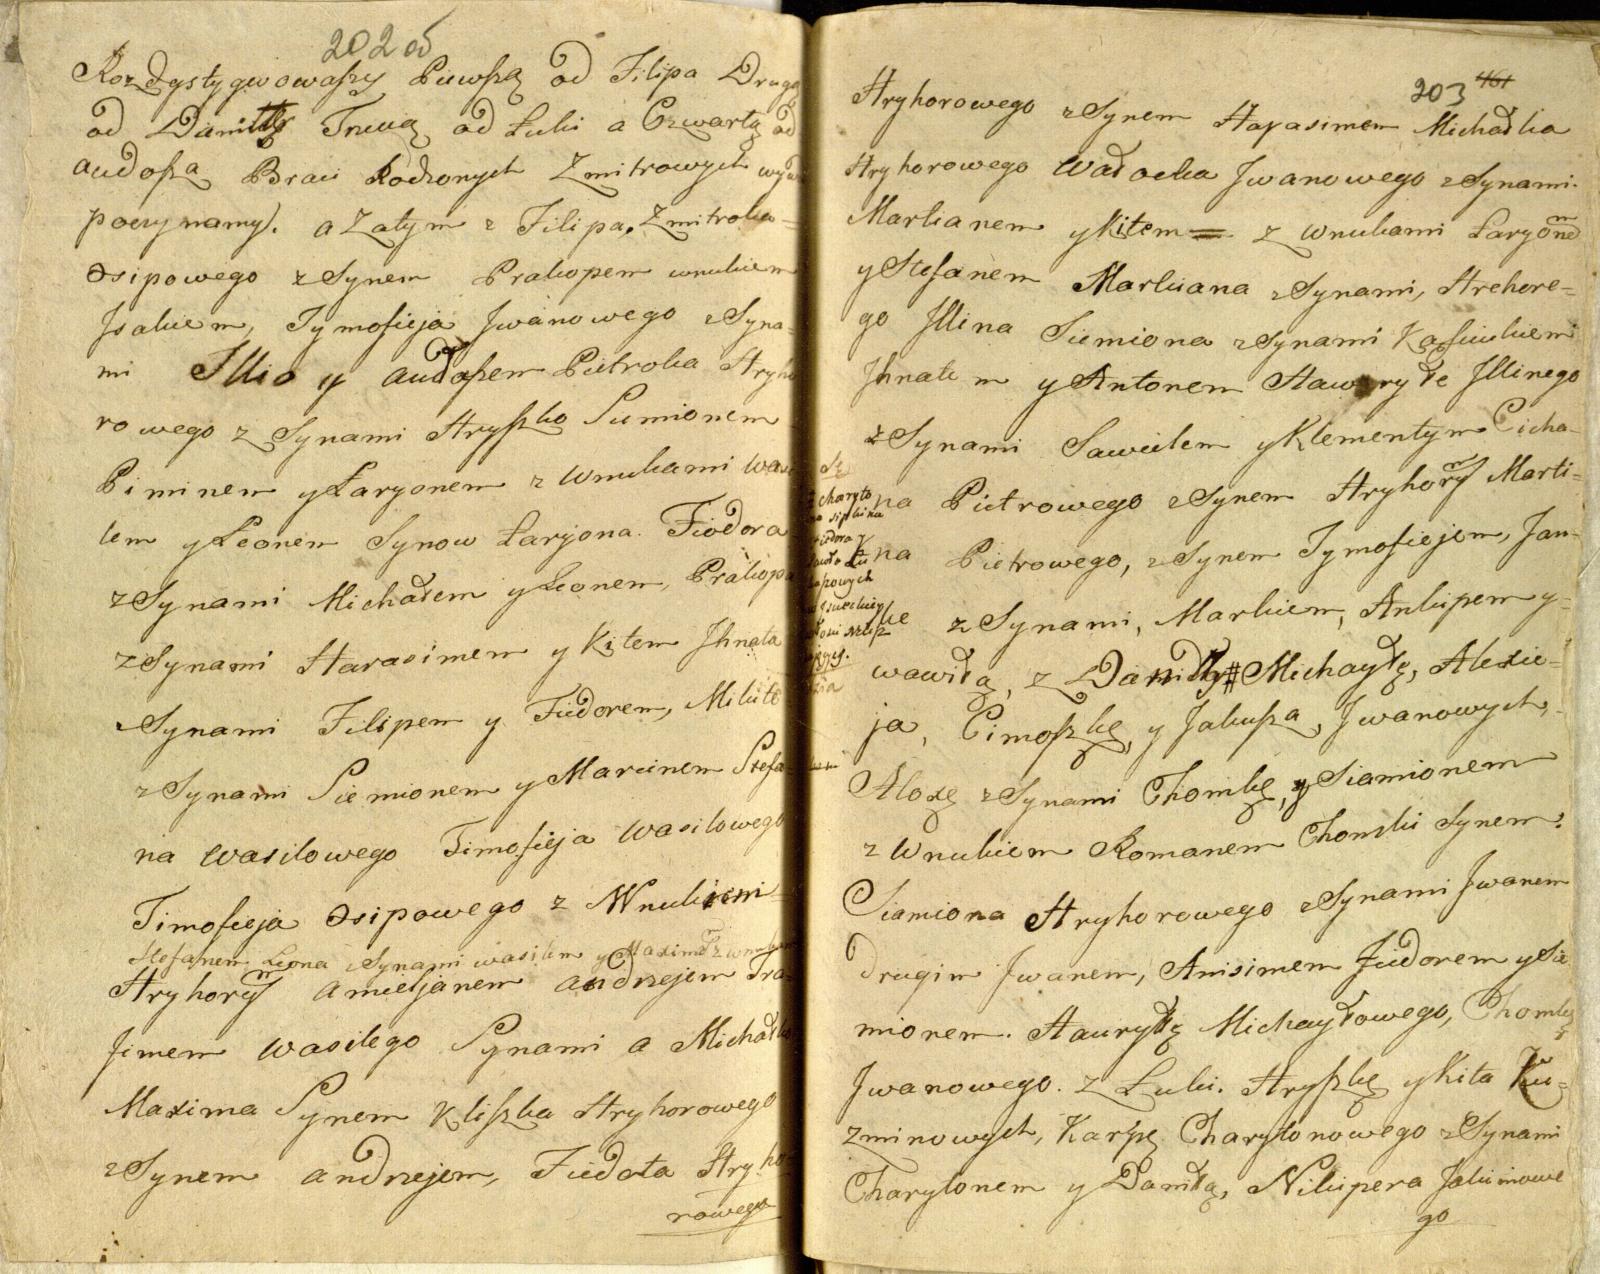 202 об
Rozdystygwowaszy Pierwszą od Filipa Drugą
od Daniłły Trzecią od Łuki a Czwartą od
audosza Braci Rodzonych Zmitrowych
poczynamy). a Zatym z Filipa, Zmitroka
Osipowego z Synem Prakopem wnukiem
Jsakiem, Tymofieja Jwanowego z Syna-
mi Jllio y audosem Pietroka Hryho
rowego z Synami Hryszko Siemionem
Piminem y Łaryonem z Wnukami Wasi
lem y Leonem Synow Łaryona. Fiodora
z Synami Michałem y Leonem, Prakopa
z Synami Harasimem y Kitem Jhnata
z Synami Filipem y Fiedorem, Mikite
z Synami Siemionem y Marcinem Stefa-
na Wasilowego Timofieja Wasilowego
Timofieja Osipowego z Wnukiem
Stefanem Leona z Synami wasilem y Maximem z wnukiem
Hryhorym amieljanem andrzejem Tra-
fimem Wasilego Synami a Michałko
Maxima Synem Kliszka Hryhorowego
z Synem andrzejem, Fiedota Hryho-
rowego
203 461
Hryhorowego z Synem Harasimem Michałka
Hryhorowego Waśocka Jwanowego z Synami
Markanem y Kitem = z Wnukami Łaryonem
y Stefanem Markiana z Synami, Hrehore-
go Jllina Siemiona z Synami Kaśniukiem
Jhnatem y Antonem Hawryłe Jllinego
z Synami Sawielem y Klementym Cicha-
na Pietrowego z Synem Hryhorym Marti-
na Pietrowego, z Synem Tymofiejem, Jan-
ke z Synami, Markiem, Ankipem y
wawiłą, z Daniłły # Michayłę, Alexie-
ja, Cimoszkę, y Jakusza, Jwanowych,
Aloxę z Synami Chomkę, y Siamionem
z Wnukiem Romanem Chomki Synem.
Siamiona Hryhorowego z Synami Jwanem
Drugim Jwanem, Anisimem Fiedorem y Sie
mionem. Hauryłę Michayłowego, Chomkę
Jwanowego. Z Łuki. Hryszkę y Kita Ku-
zminowych, Karpę Charytonowego z Synami
Charytonem y Daniłą, Nikipera Jakimowe
go